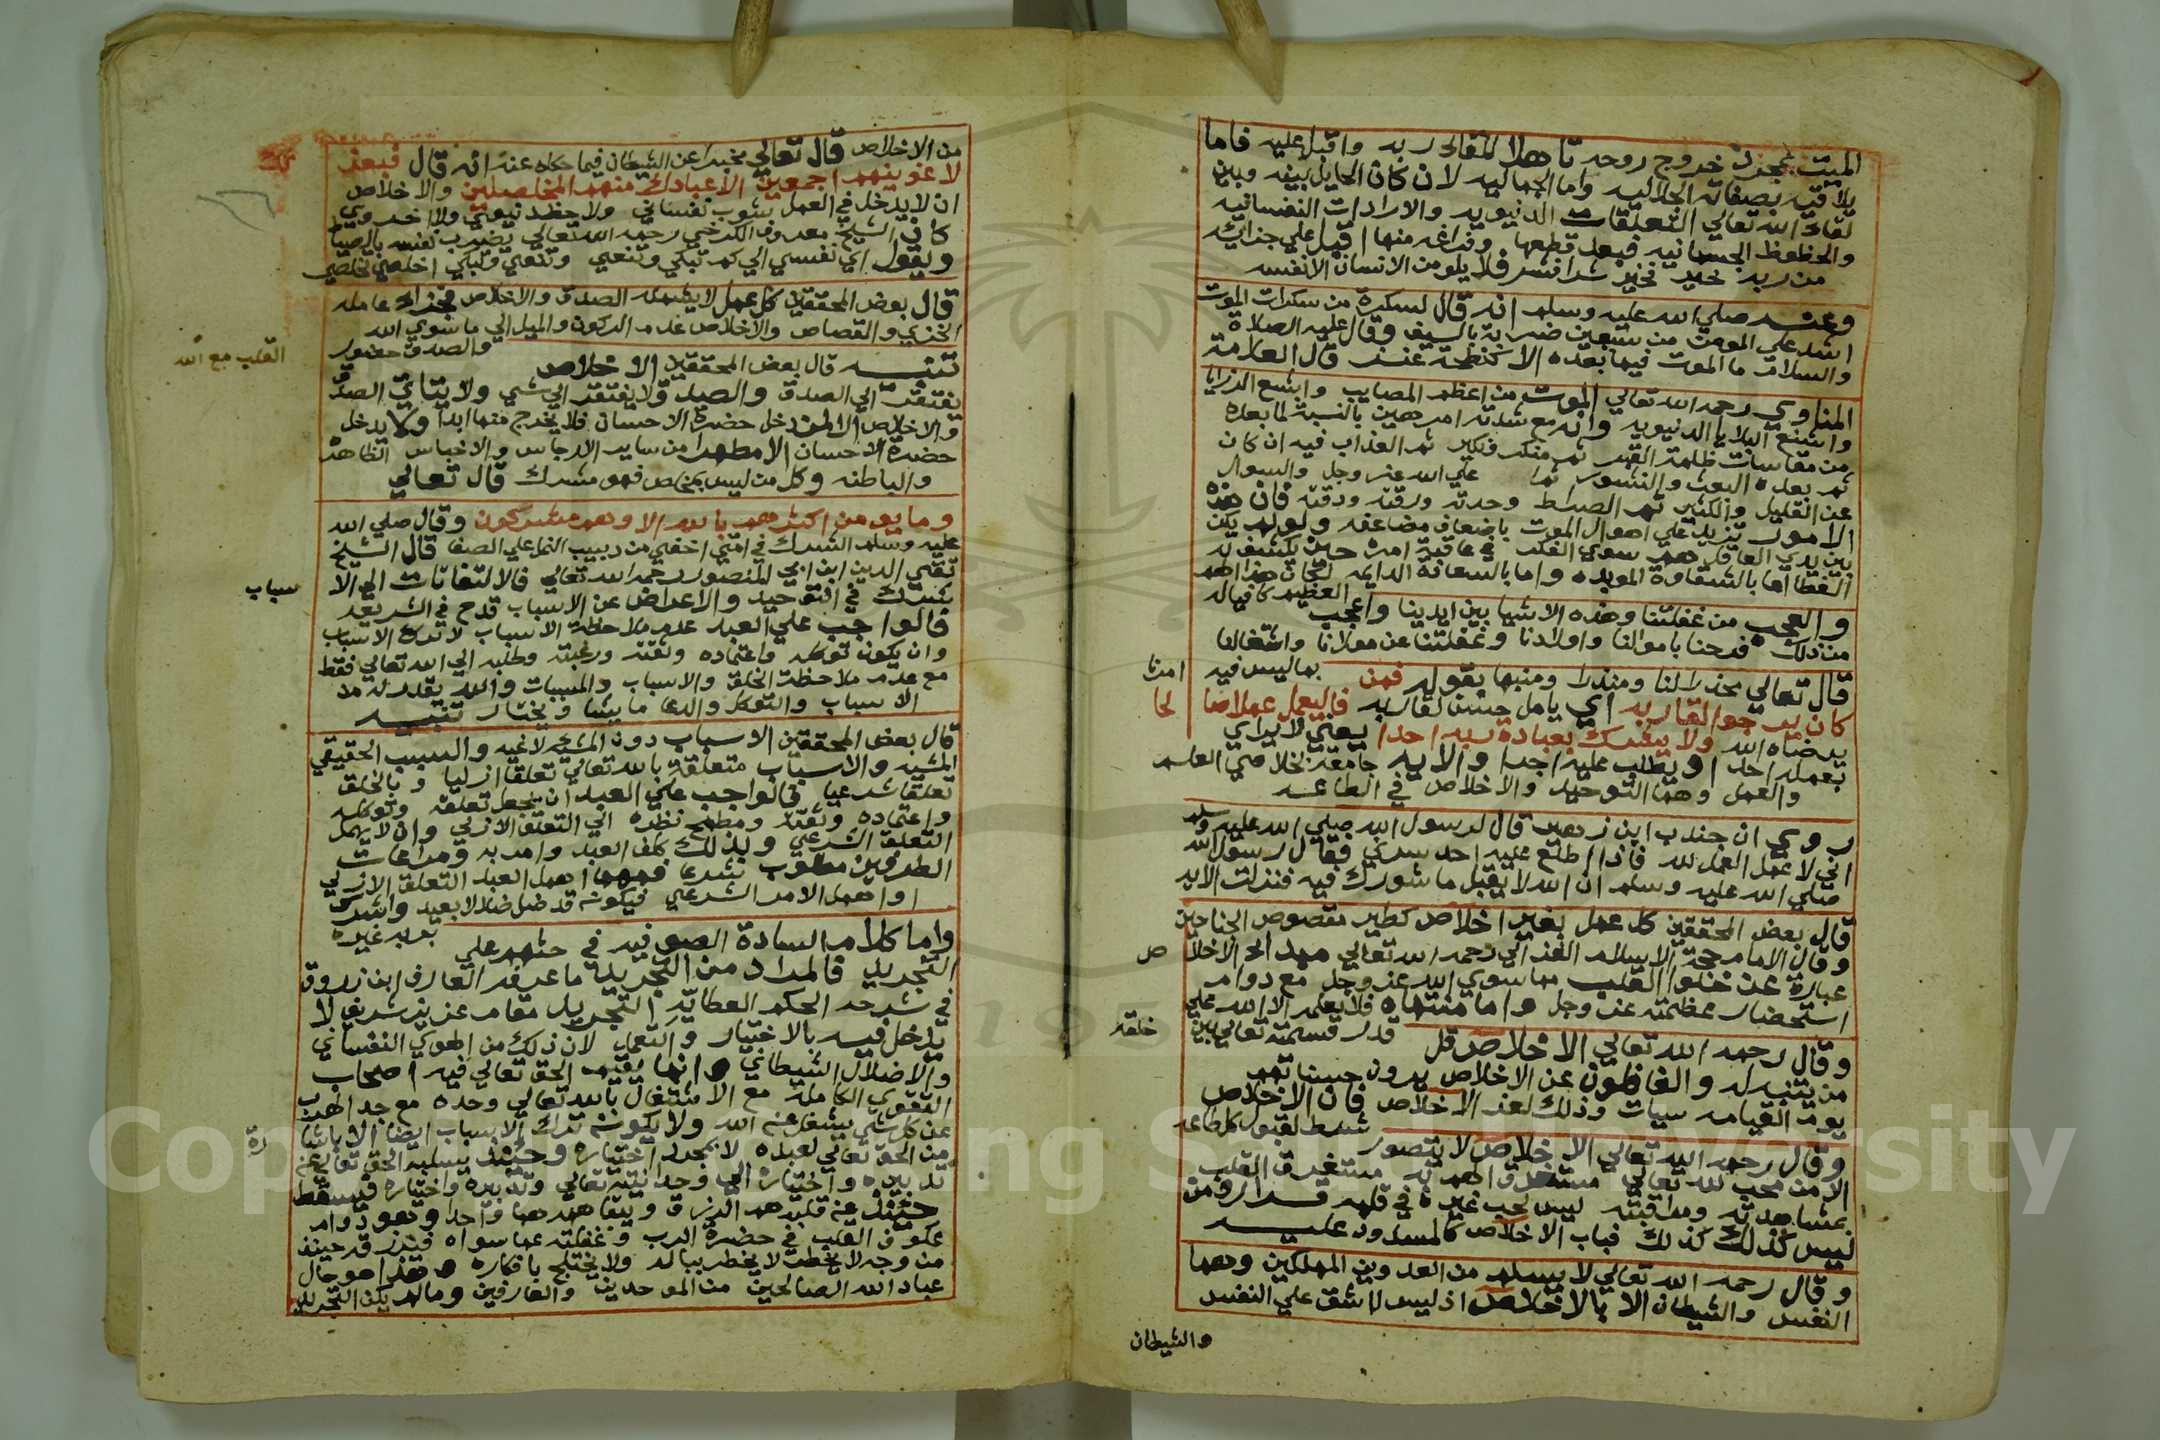 الميت بمجرد خروج روحه تاهلا للقاء ربه واقبل عليه فاما
يلاقيه بصفاته الجلاليه واما الجماليه لان كان الحايل بينه وبين
لقاء الله تعالي التعلقات الدنيويه والارادات النفسانيه
والحظوظ الجسمانيه فبعد قطعها وفراغه منها اقبل علي جزائه
من ربه خير فخير شرا فشر فلا يلومن الانسان الا نفسه
وعنه صلي الله عليه وسلم انه قال لسكرة من سكرات الموت
اشد علي المومن من سبعين ضربة بالسيف وقال عليه الصلاة
والسلام ما الموت فيما بعده الا كنطحة عنز قال العلامة
المناوي رحمه الله تعالي الموت من اعظم المصايب وابشع الرزايا
واشنع البلايا الدنيويه وانه مع شدته امر هين بالنسبة لما بعده
من مقاسات ظلمة القبر ثم منكر ونكير ثم العذاب فيه ان كان
ثم بعده البعث والنشور ثم علي الله عز وجل والسوال
عن القليل والكثير ثم الصراط وحدته ورقته ودقته فان هذه
الامور تزيد علي اهوال الموت باضعاف مضاعفه ولو لم يكن
بين يدي العاقل هم سوي الفكر في عاقبة امره حين يكشف له
الغطا اما بالشقاوة الموبده واما بالسعادة الدايمه لكان هذا الهم
العظيم كافيا له
والعجب من غفلتنا وهذه الاشيا بين ايدينا واعجب
من ذلك فرحنا باموالنا واولادنا وغفلتنا عن مولانا واشتغالنا
بما ليس فيه امرنا
قال تعالي محذرا لنا ومنذرا ومنبها بقوله فمن
كان يرجو القا ربه اي يامل حسن لقا ربه فاليعمل عملا صا لحا
يرضاه الله ولا يشرك بعبادة ربه احدا يعني لا يراي
بعمله احد او يطلب عليه اجرا والايه جامعة لخلاصي العلم
والعمل وهما التوحيد والاخلاص في الطاعه
روي ان جندب ابن زهير قال لرسول الله صلي الله عليه وسلم
اني لا عمل العمل لله فاذا اطلع عليه احد سرني فقال رسول الله
صلي الله عليه وسلم ان الله لا يقبل ما شورك فيه فنزلت الايه
قال بعض المحققين كل عمل بغير اخلاص كطير مقصوص الجناحين
وقال الامام حجة الاسلام الغزالي رحمه الله تعالي مبدا الاخلا ص
عبارة عن خلوا القلب مما سوي الله عز وجل مع دوام
استحضار عظمته عز وجل واما منتهاه فلا يعلمه الا الله علي
قدر قسمته تعالي بين خلقه
وقال رحمه الله تعالي الاخلاص قل
من يتنبه له والغافلون عن الاخلاص يرون حسناتهم
يوم القيامه سيات وذلك لعز الاخلاص فان الاخلاص
شرط لقبول كل طاعه
وقال رحمه الله تعالي الاخلاص لا يتصور
الا من محب لله تعالي مستغرق الهم به مستغرق القلب
بمشاهدته ومراقبته ليس لحب غيره في قلبه قرار ومن
ليس كذلك فباب الاخلاص كالمسدود عليه
وقال رحمه الله تعالي لا يسلم من العدوين المهلكين وهما
النفس والشيطان الا بالاخلاص اذ ليس اشق علي النفس
والشيطان
من الاخلاص قال تعالي مخبرا عن الشيطان فيما حكاه عنه انه قال فبعزتك
لاغوينهم اجمعين الا عبادك منهم المخلصلين والاخلاص
ان لا يدخل في العمل شوب نفساني ولا حظ دنيوي ولا اخروي
كان الشيخ معروف الكرخي رحمه الله تعالي يضرب نفسه بالعصا
ويقول اي نفسي الي كم تبكي وتنعي وتنعي وتبكي اخلصي تخلصي
قال بعض المحققين كل عمل لا يشمله الصدق والاخلاص فجزاء عامله
الخزي والقصاص والاخلاص عدم الركون والميل الي ما سوي الله
والصدق حضور القلب مع الله
تنبيه قال بعض المحققين الاخلاص
يفتقر الي الصدق والصدق لا يفتقر الي شي ولا يتاتي الصدق
والاخلاص الا لمن دخل حضرة الاحسان فلا يخرج منها ابدا ولا يدخل
حضرة الاحسان الا مطهرا من ساير الارجاس والاخباس الظاهرة
والباطنه وكل من ليس بمخلص فهو مشرك قال تعالي
وما يومن اكثرهم بالله الا وهم مشركون وقال صلي الله
عليه وسلم الشرك في امتي اخفي من دبيب النمل علي الصفا قال الشيخ
تقي الدين ابن ابي المنصور رحمه الله تعالي فالالتفات الي الا سباب
شرك في التوحيد والاعراض عن الاسباب قدح في الشريعه
فالواجب علي العبد عدم ملاحظة الاسباب لا ترك الاسباب
وان يكون توكله واعتماده وثقته ورغبته وطلبه الي الله تعالي فقط
مع عدم ملاحظة الخلق والاسباب والمسببات والله يقدر له من
الاسباب والتوكل والدعا ما يشا ويختار تنبيه
قال بعض المحققين الاسباب دون المشيه لاغيه والسبب الحقيقي
المشيه والاسباب متعلقة بالله تعالي تعلقا ازليا وبالخلق
تعلقا شرعيا فالواجب علي العبد ان يجعل تعلقه وتوكله
واعتماده وثقته ومطمح نظره الي التعلق الازلي وان لا يهمل
التعلق الشرعي وبذلك كلف العبد وامر به ومراعات
الطرفين مطلوب شرعا فمهما اهمل العبد التعلق الازلي
او اهمل الامر الشرعي فيكون قد ضل ضلالا بعيد واشرك
بربه غيره
واما كلام السادة الصوفيه في حثهم علي
التجريد فالمراد من التجريد ما عرفه العارف ابن زروق
في شرحه الحكم العطائيه التجريد مقام عزيز شريف لا
يدخل فيه بالاختيار والتعمل لان ذلك من الهوي النفساني
والاضلال الشيطاني وانما يقيم الحق تعالي فيه اصحاب
التقوي الكامله مع الاشتغال بالله تعالي وحده مع جد الهرب
عن كل شي يشغل عنه الله ولا يكون ترك الاسباب ايضا الا باشا رة
من الحق تعالي لعبده لا بمجرد اختياره وحينئذ يسلبه الحق تعالي عن
تدبيره واختياره الي وحدانيته تعالي وتدبيره واختياره فيسقط
حينئذ عن قلبه هم الرزق ويبقا همه هما واحدا وهو دوام
عكوف القلب في حضرة الرب وغفلته عما سواه فيرزقه حينئذ
من وجه لا يخطر لا يخطر بباله ولا يختلج بافكاره وهذا هو حال
عباد الله الصالحين من الموحدين والعارفين وما لم يكن التجريد